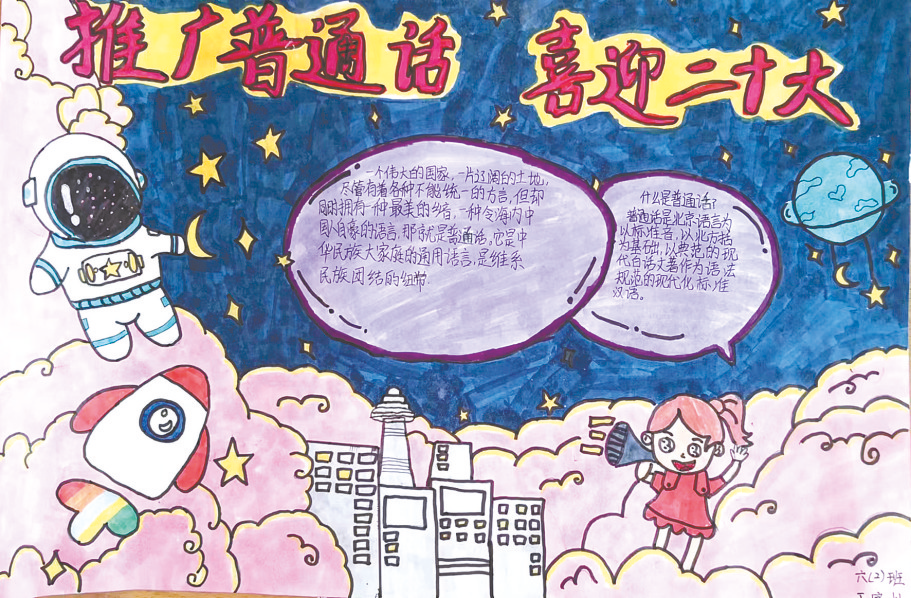 推广普通话 喜迎二十大
一个伟大的国家,一片辽阔的土地,
尽管有着各种不能统一的方言,但却
拥有一种最美的乡音,一种令海内中
国人自豪的语言,那就是普通话,它是中
华民族大家庭的通用语言,是维系
民族团结的纽带.
什么是普通话?
普通话是北京语言为
以标准音,以北方括
为基础,以典范的现
代百话文著作为语法
规范的现代化标准
汉语。
六(2)班